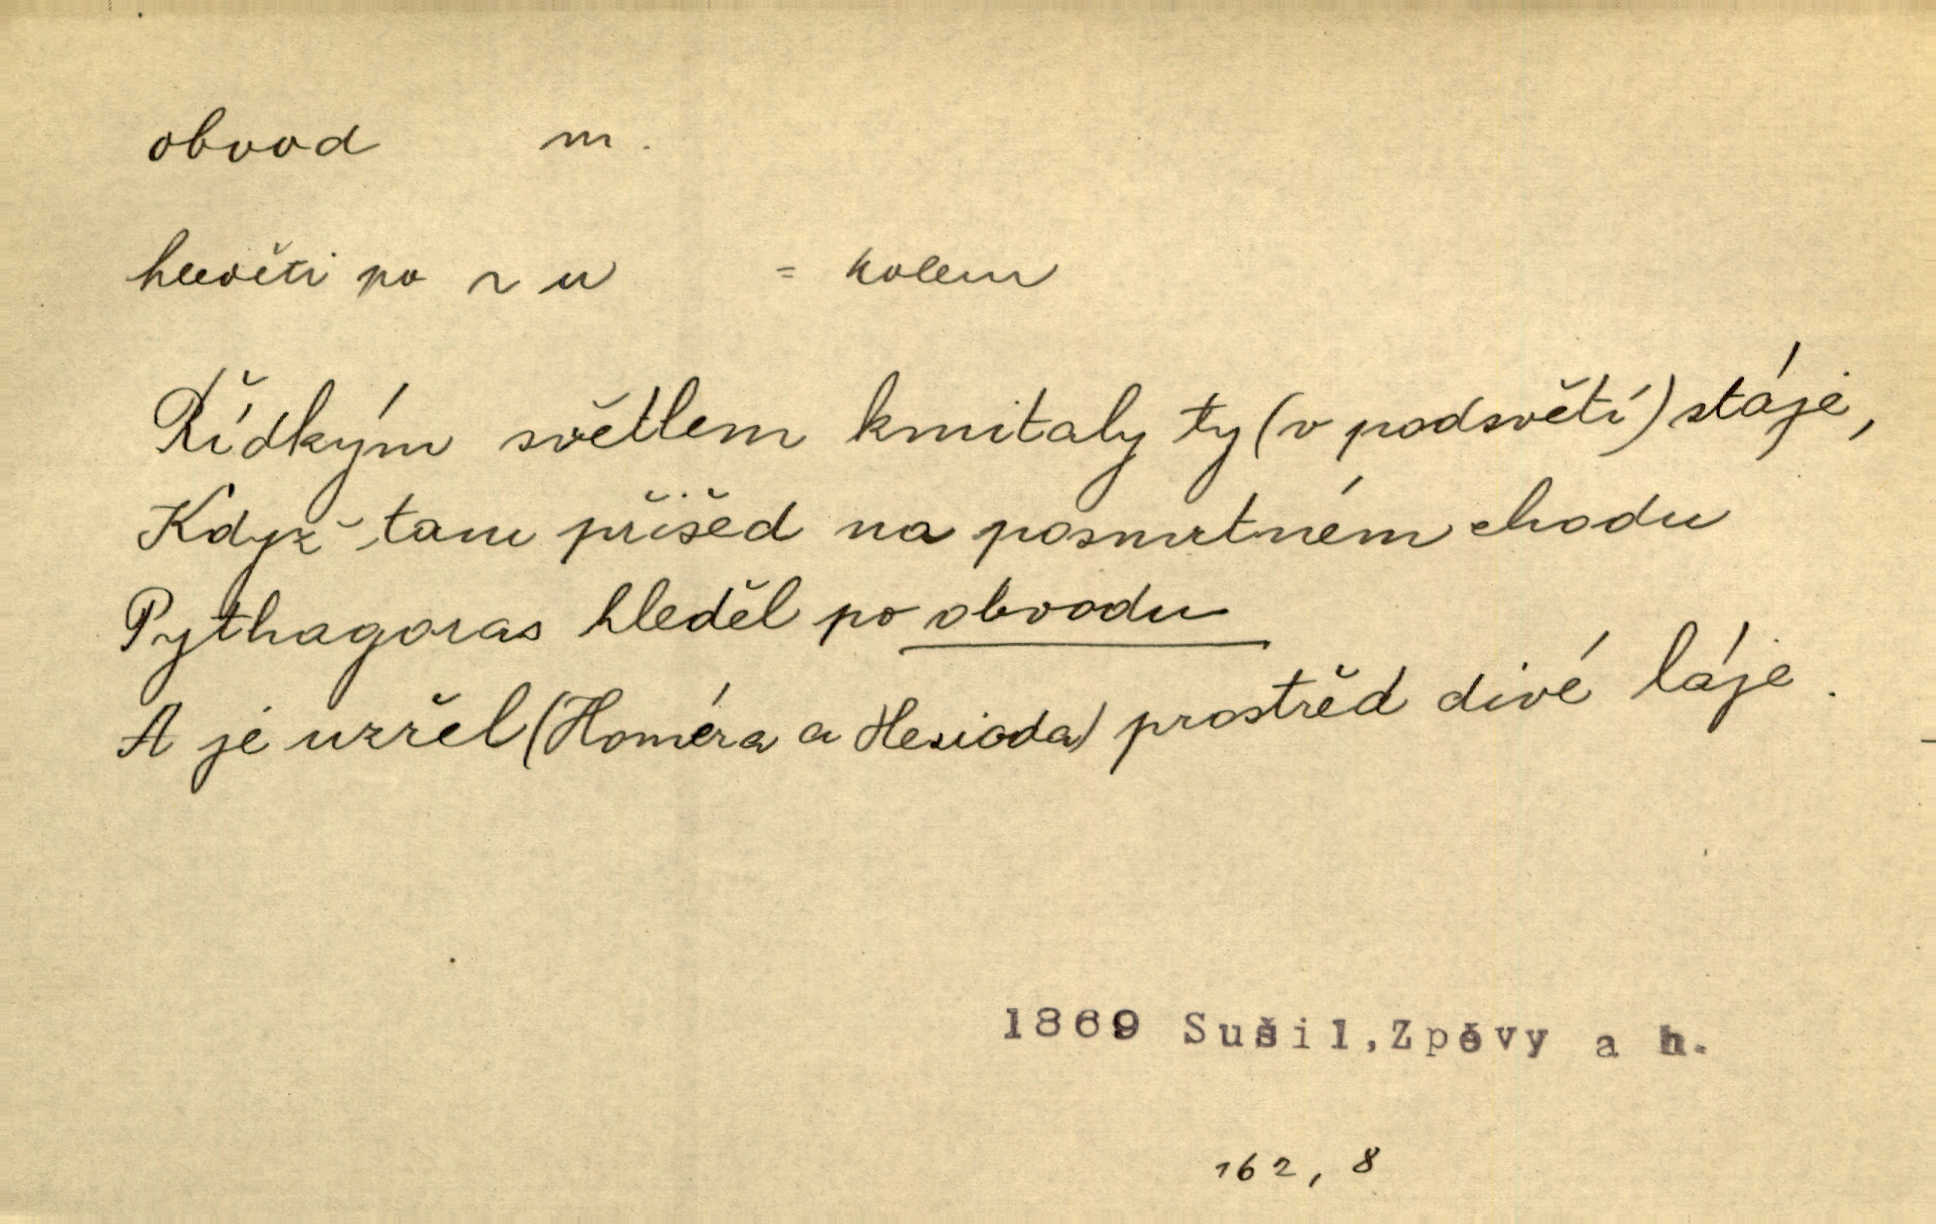 obvod m.
hleděti po ~ u = kolem
Řídkým světlem kmitaly ty (v podsvětí) stáje,
Když tam přišed na posmrtném chodu
Pythagoras hleděl po obvodu
A je uzřel (Homéra a Hesioda) prostřed divé láje.
1869 Sušil, Zpěvy a h.
162, 8